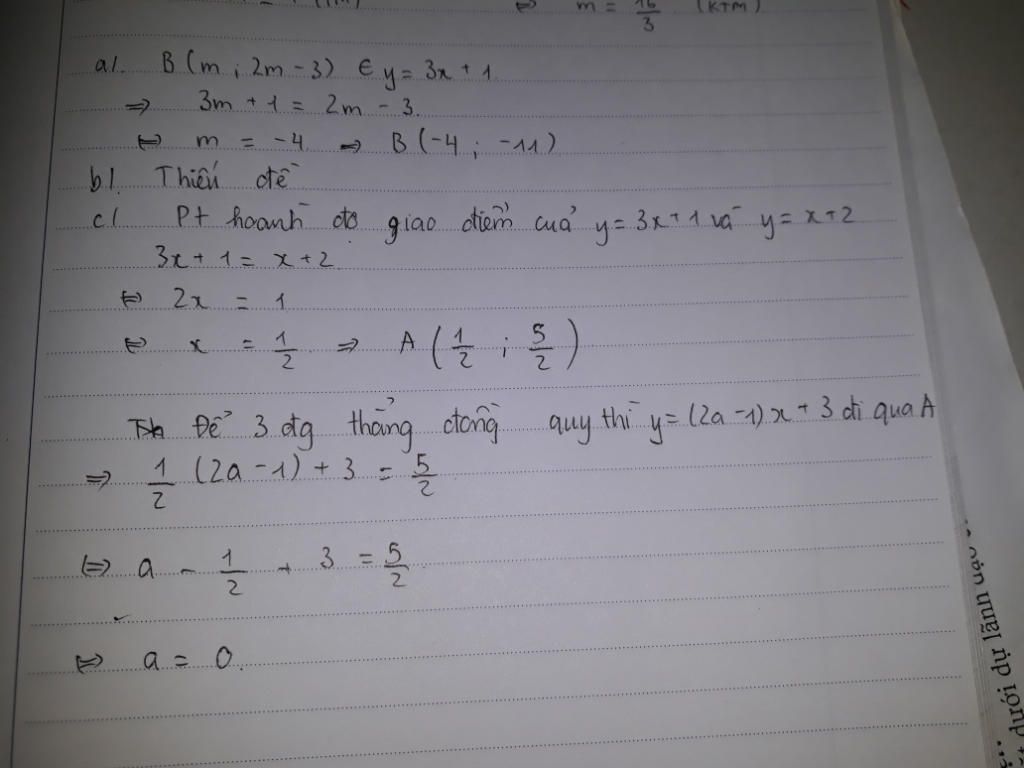 ⇔ m = 16/3 (KTM)
a/. B(m ; 2m - 3) ∈ y = 3x + 1
⇒ 3m + 1 = 2m - 3.
⇔ m = -4 ⇒ B(-4 ; -11)
b/. Thiếu đề
c/. Pt hoành độ giao điểm của y = 3x + 1 và y = x + 2
3x + 1 = x + 2
⇔ 2x = 1
⇔ x = 1/2 ⇒ A (1/2 ; 5/2)
Để 3 đtg thẳng đồng quy thì y = (2a - 1)x + 3 đi qua A
⇒ 1/2 (2a - 1) + 3 = 5/2
⇔ a - 1/2 + 3 = 5/2
⇔ a = 0.
dưới dự lãnh